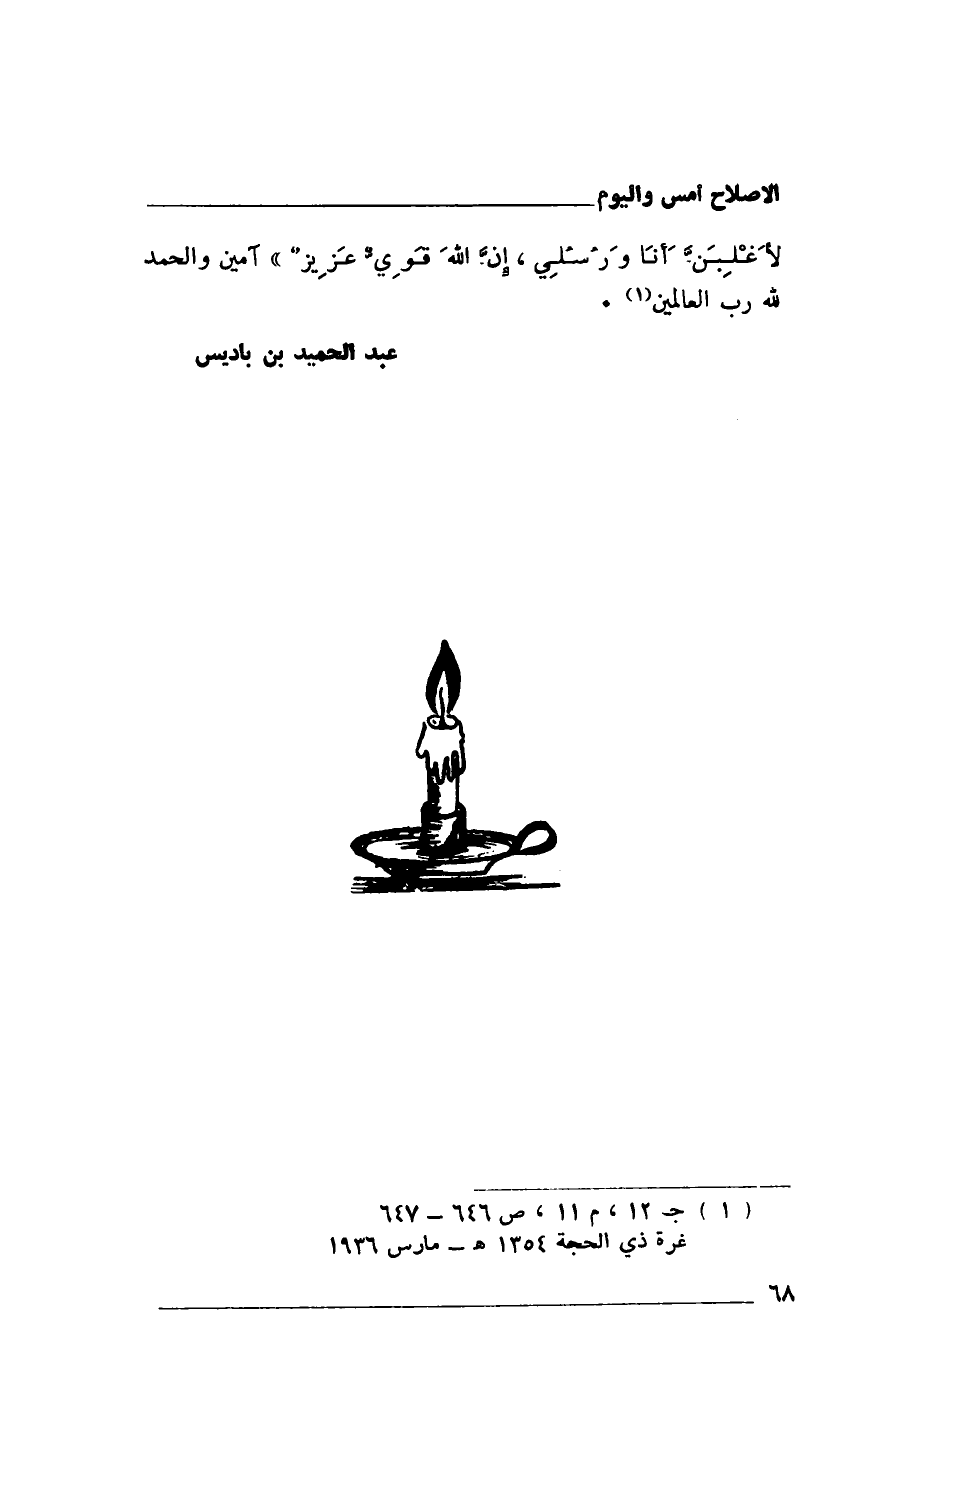 الاصلاح امس واليوم
لأَغْلِبَنَّ أَنَا وَرُسُلِي ، إِنَّ اللهَ قَوِيٌّ عَزِيزٌ » آمين والحمد
لله رب العالمين(١) .
عبد الحميد بن باديس
( ١ ) جـ ١٢ ، م ١١ ، ص ٦٤٦ ــ ٦٤٧
غرة ذي الحجة ١٣٥٤ هـ ــ مارس ١٩٣٦
٦٨